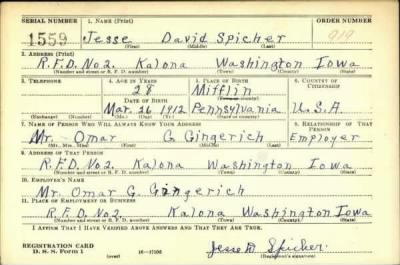 SERIAL NUMBER 1. NAME (Print) ORDER NUMBER
1559 Jesse David Spicher 919
(First) (Middle) (Last)
2. ADDRESS (Print)
R.F.D. No 2. Kalona Washington Iowa
(Number and street or R. F. D. number) (Town) (County) (State)
3. TELEPHONE 4. AGE IN YEARS 5. PLACE OF BIRTH 6. COUNTRY OF CITIZENSHIP
28 Mifflin
DATE OF BIRTH (Town or county)
Mar. 26 1912 Pennsylvania U.S.A
(Exchange) (Number) (Mo.) (Day) (Yr.) (State or country)
7. NAME OF PERSON WHO WILL ALWAYS KNOW YOUR ADDRESS 8. RELATIONSHIP OF THAT PERSON
Mr. Omar G. Gingerich Employer
(Mr., Mrs., Miss) (First) (Middle) (Last)
9. ADDRESS OF THAT PERSON
R.F.D. No2. Kalona Washington Iowa
(Number and street or R. F. D. number) (Town) (County) (State)
10. EMPLOYER'S NAME
Mr. Omar G. Gingerich
11. PLACE OF EMPLOYMENT OR BUSINESS
R.F.D. No2. Kalona Washington Iowa
(Number and street or R. F. D. number) (Town) (County) (State)
I AFFIRM THAT I HAVE VERIFIED ABOVE ANSWERS AND THAT THEY ARE TRUE.
REGISTRATION CARD Jesse D. Spicher.
D. S. S. Form 1 (over) 16—17105 (Registrant's signature)